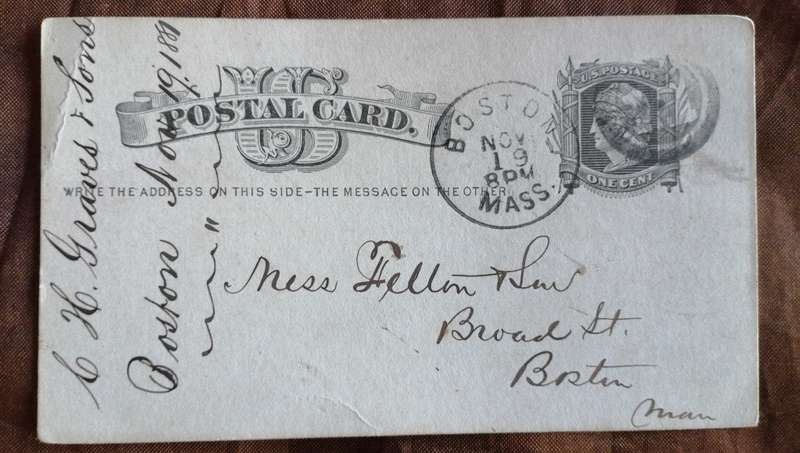 US
POSTAL CARD.
WRITE THE ADDRESS ON THIS SIDE-THE MESSAGE ON THE OTHER
BOSTON
NOV
19
8PM
MASS.
U.S. POSTAGE
ONE CENT
Mess Felton & Son
Broad St.
Boston
Mass
C H. Graves & Sons
Boston Nov. 19, 188